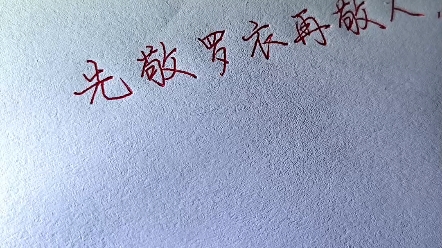 先敬罗衣再敬人.